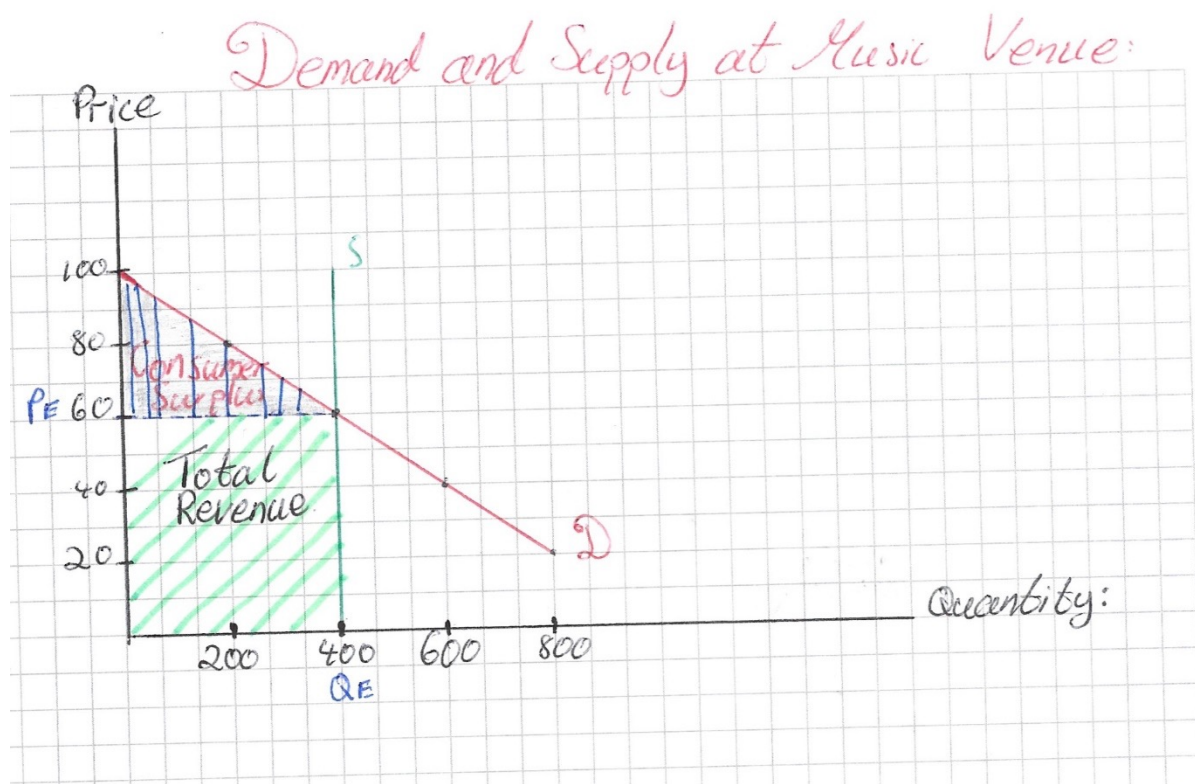 Demand and Supply at Music Venue:
Price
100
S
80
Consumer
Surplus
PE 60
Total
Revenue
40
20
D
Quantity:
200 400 600 800
QE